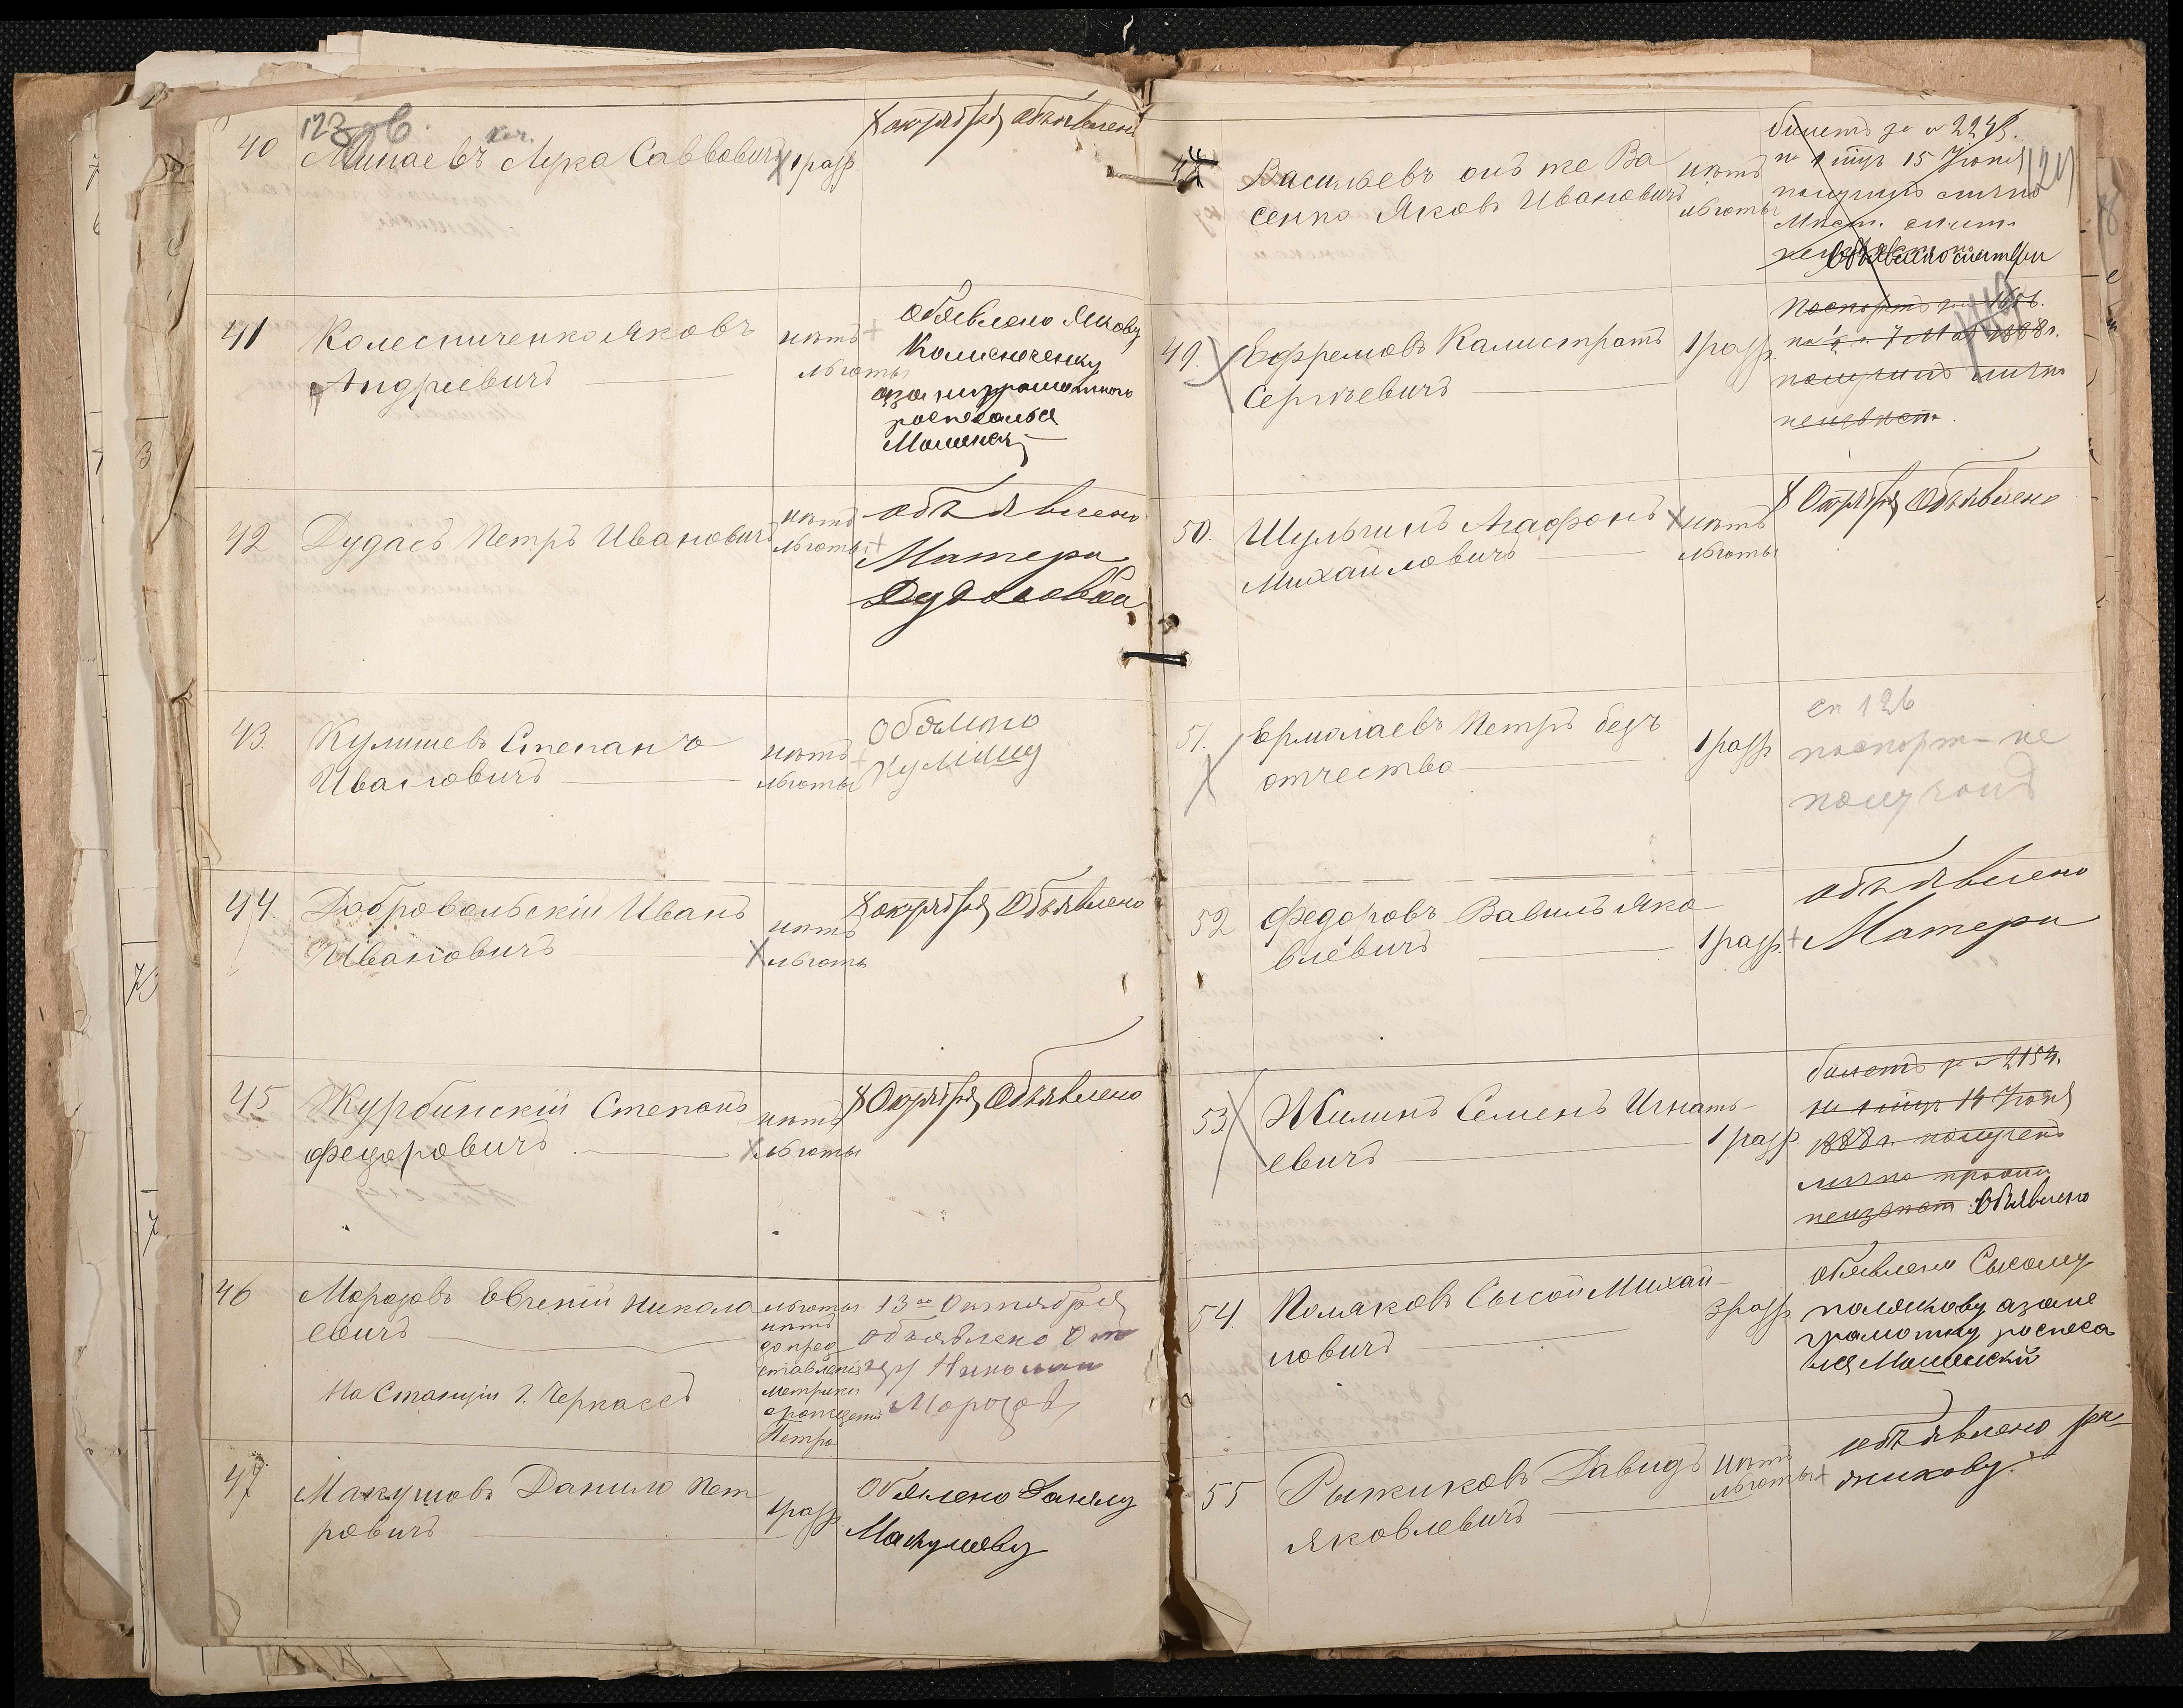 123 об.
40 Минаевъ Лука Саввовичъ 1 разр. 8 октября Объявлено
41 Колесниченко Яковъ нѣтъ
Андреевичъ льготы
Обявлено Якову
Колисноченку
аза неграмотного
росписалься
42 Дудасъ Петръ Ивановичъ нѣтъ
льготы
объявлено
Матери
Дудасовой
43. Кулишевъ Степанъ нѣтъ
Ивановичъ льготы
44. Добровольскій Иванъ нѣтъ
Ивановичъ льготы
8 октября Объявлено
45 Журбинскій Степанъ нѣтъ
Федоровичъ льготы
8 Октября Объявлено
46 Морозовъ Евгеній Никола
евичъ
На Станціи г. Черкасъ
льготы
нѣтъ
до пред
ставленія
метрики
о рожденіи
Петра
13го Октября
объявлено От
Николай
Морозовъ
47 Макушовъ Данило Пет
ровичъ 1 разр.
Обявлено Данилу
Макушеву
124
48 Васильевъ онъ же Ва
сенко Яковъ Ивановичъ
нѣтъ
льготы
билетъ за № 2248.
на 1 мѣс 15 Іюня
получилъ лично
49. Ефремовъ Калистратъ 1 разр.
Сергѣевичъ
Паспортъ за № 1656.
на ½ г. 7 Мая 1888 г.
получилъ лично
неизвѣст.
50. Шульгинъ Агафонъ нѣтъ
Михайловичъ льготы
8 Октября Объявлено
51. Ермолаевъ Петръ безъ
отчества 1 разр
сп 126
паспорт не
получалъ
52 Федоровъ Вавилъ Яко
влевичъ 1 разр.
объявлено
Матери
53 Жилинъ Семенъ Игнать-
евичъ 1 разр.
билетъ за № 2154.
на 1 мѣс 14 Іюня
1888 г. получено
лично
неизвѣст Объявлено
54. Поляковъ Сысой Михай-
ловичъ 3 разр.
обявлено Сысому
полякову азане
грамотну росписа
лся
55 Рыжиковъ Давидъ нѣтъ
Яковлевичъ льготы
объявлено ры
жикову